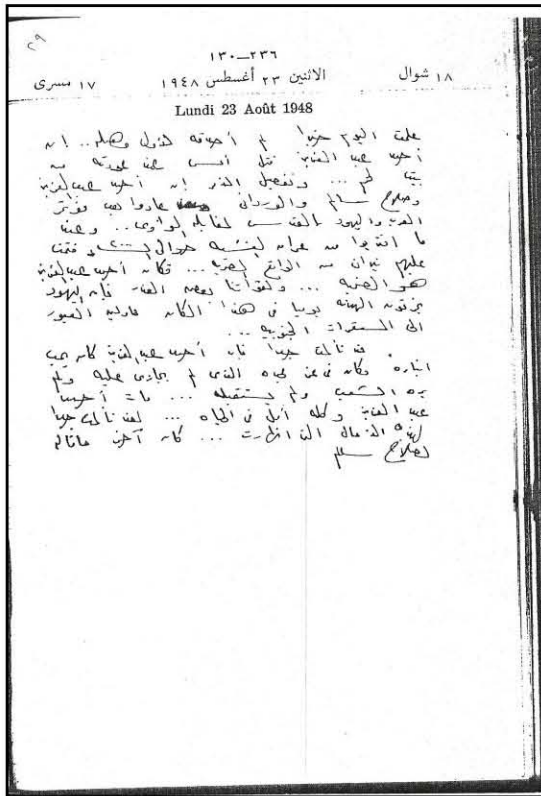 ٢٩
٢٣٦—١٣٠
١٨ شوال الاثنين ٢٣ أغسطس ١٩٤٨ ١٧ مسرى
Lundi 23 Août 1948
علمت اليوم خبرا لم أصدقه لأول وهلة.. إن
أحمد عبد العزيز قتل أمس عند عودته من
بيت لحم ... وتفصيل الخبر إن أحمد عبد العزيز
وصلاح سالم والوردانى عادوا بعد مؤتمر
العرب واليهود بالقدس لمقابلة المواوى ... وعند
ما اقتربوا من عراق المنشية حوالى فتحت
عليهم نيران من المواقع ... فكان أحمد عبد العزيز
هو الضحية ... ولقواتنا بعض العذر فإن اليهود
يخرقون الهدنة يوميا فى هذا المكان العبور
الى المستعمرات الجنوبية ...
لقد تألمت جدا فإن أحمد عبد العزيز كان يحب
وكان الذى لم يجازى عليه ولم
يره الشعب ولم يستقبله ... مات أحمد
عبد العزيز وكله أمل فى الحياة ... لقد تألمت جدا
لهذه الآمال التى انهارت ... كان آخر ما قاله
لصلاح سالم